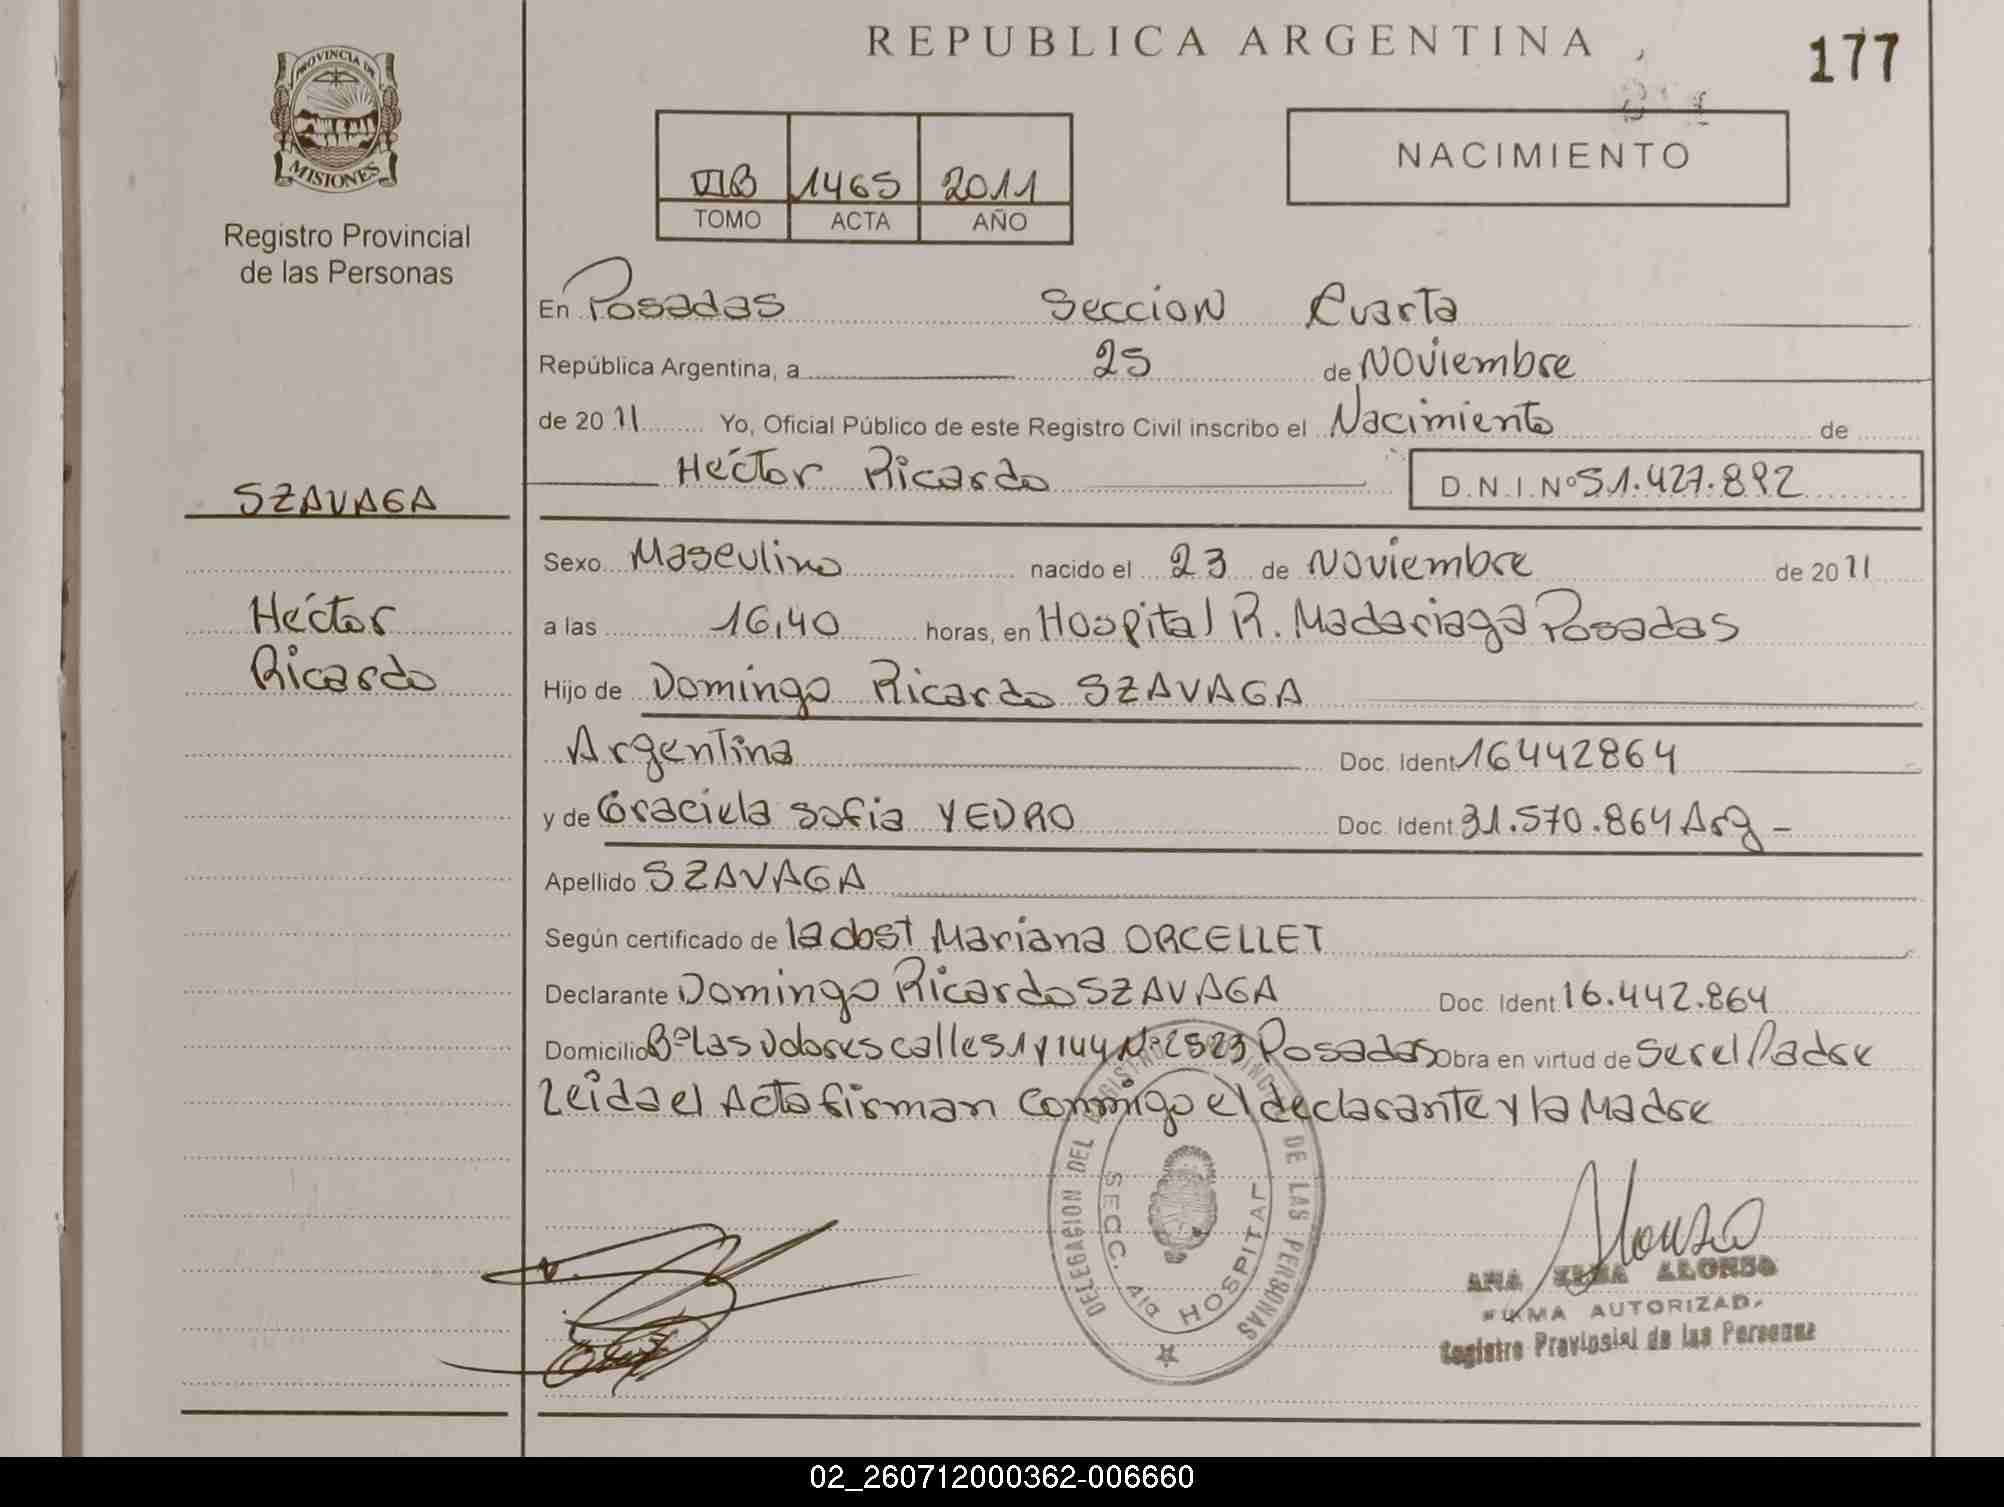 REPUBLICA ARGENTINA
177
PROVINCIA DE
MISIONES
Registro Provincial
de las Personas
VIIB 1465 2011
TOMO ACTA AÑO
NACIMIENTO
En Posadas Seccion Cuarta
República Argentina, a 25 de Noviembre
de 2011 Yo, Oficial Público de este Registro Civil inscribo el Nacimiento de
Héctor Ricardo D.N.I.Nº 51.427.892
SZAVAGA
Sexo Masculino nacido el 23 de Noviembre de 2011
Héctor
a las 16,40 horas, en Hospital R. Madariaga Posadas
Ricardo
Hijo de Domingo Ricardo SZAVAGA
Argentina Doc. Ident 16442864
y de Graciela Sofia YEDRO Doc. Ident 31.570.864 Arg -
Apellido SZAVAGA
Según certificado de la obst Mariana ORCELLET
Declarante Domingo Ricardo SZAVAGA Doc. Ident 16.442.864
Domicilio Bº las Dolores calles 1 y 144 Nº 2523 Posadas Obra en virtud de ser el Padre
Leída el Acta firman conmigo el declarante y la Madre
DELEGACION DEL REGISTRO PROVINCIAL DE LAS PERSONAS
SECC. 4ta HOSPITAL
Alonso
ANA ALONSO
FIRMA AUTORIZADA
Registro Provincial de las Personas
02_260712000362-006660